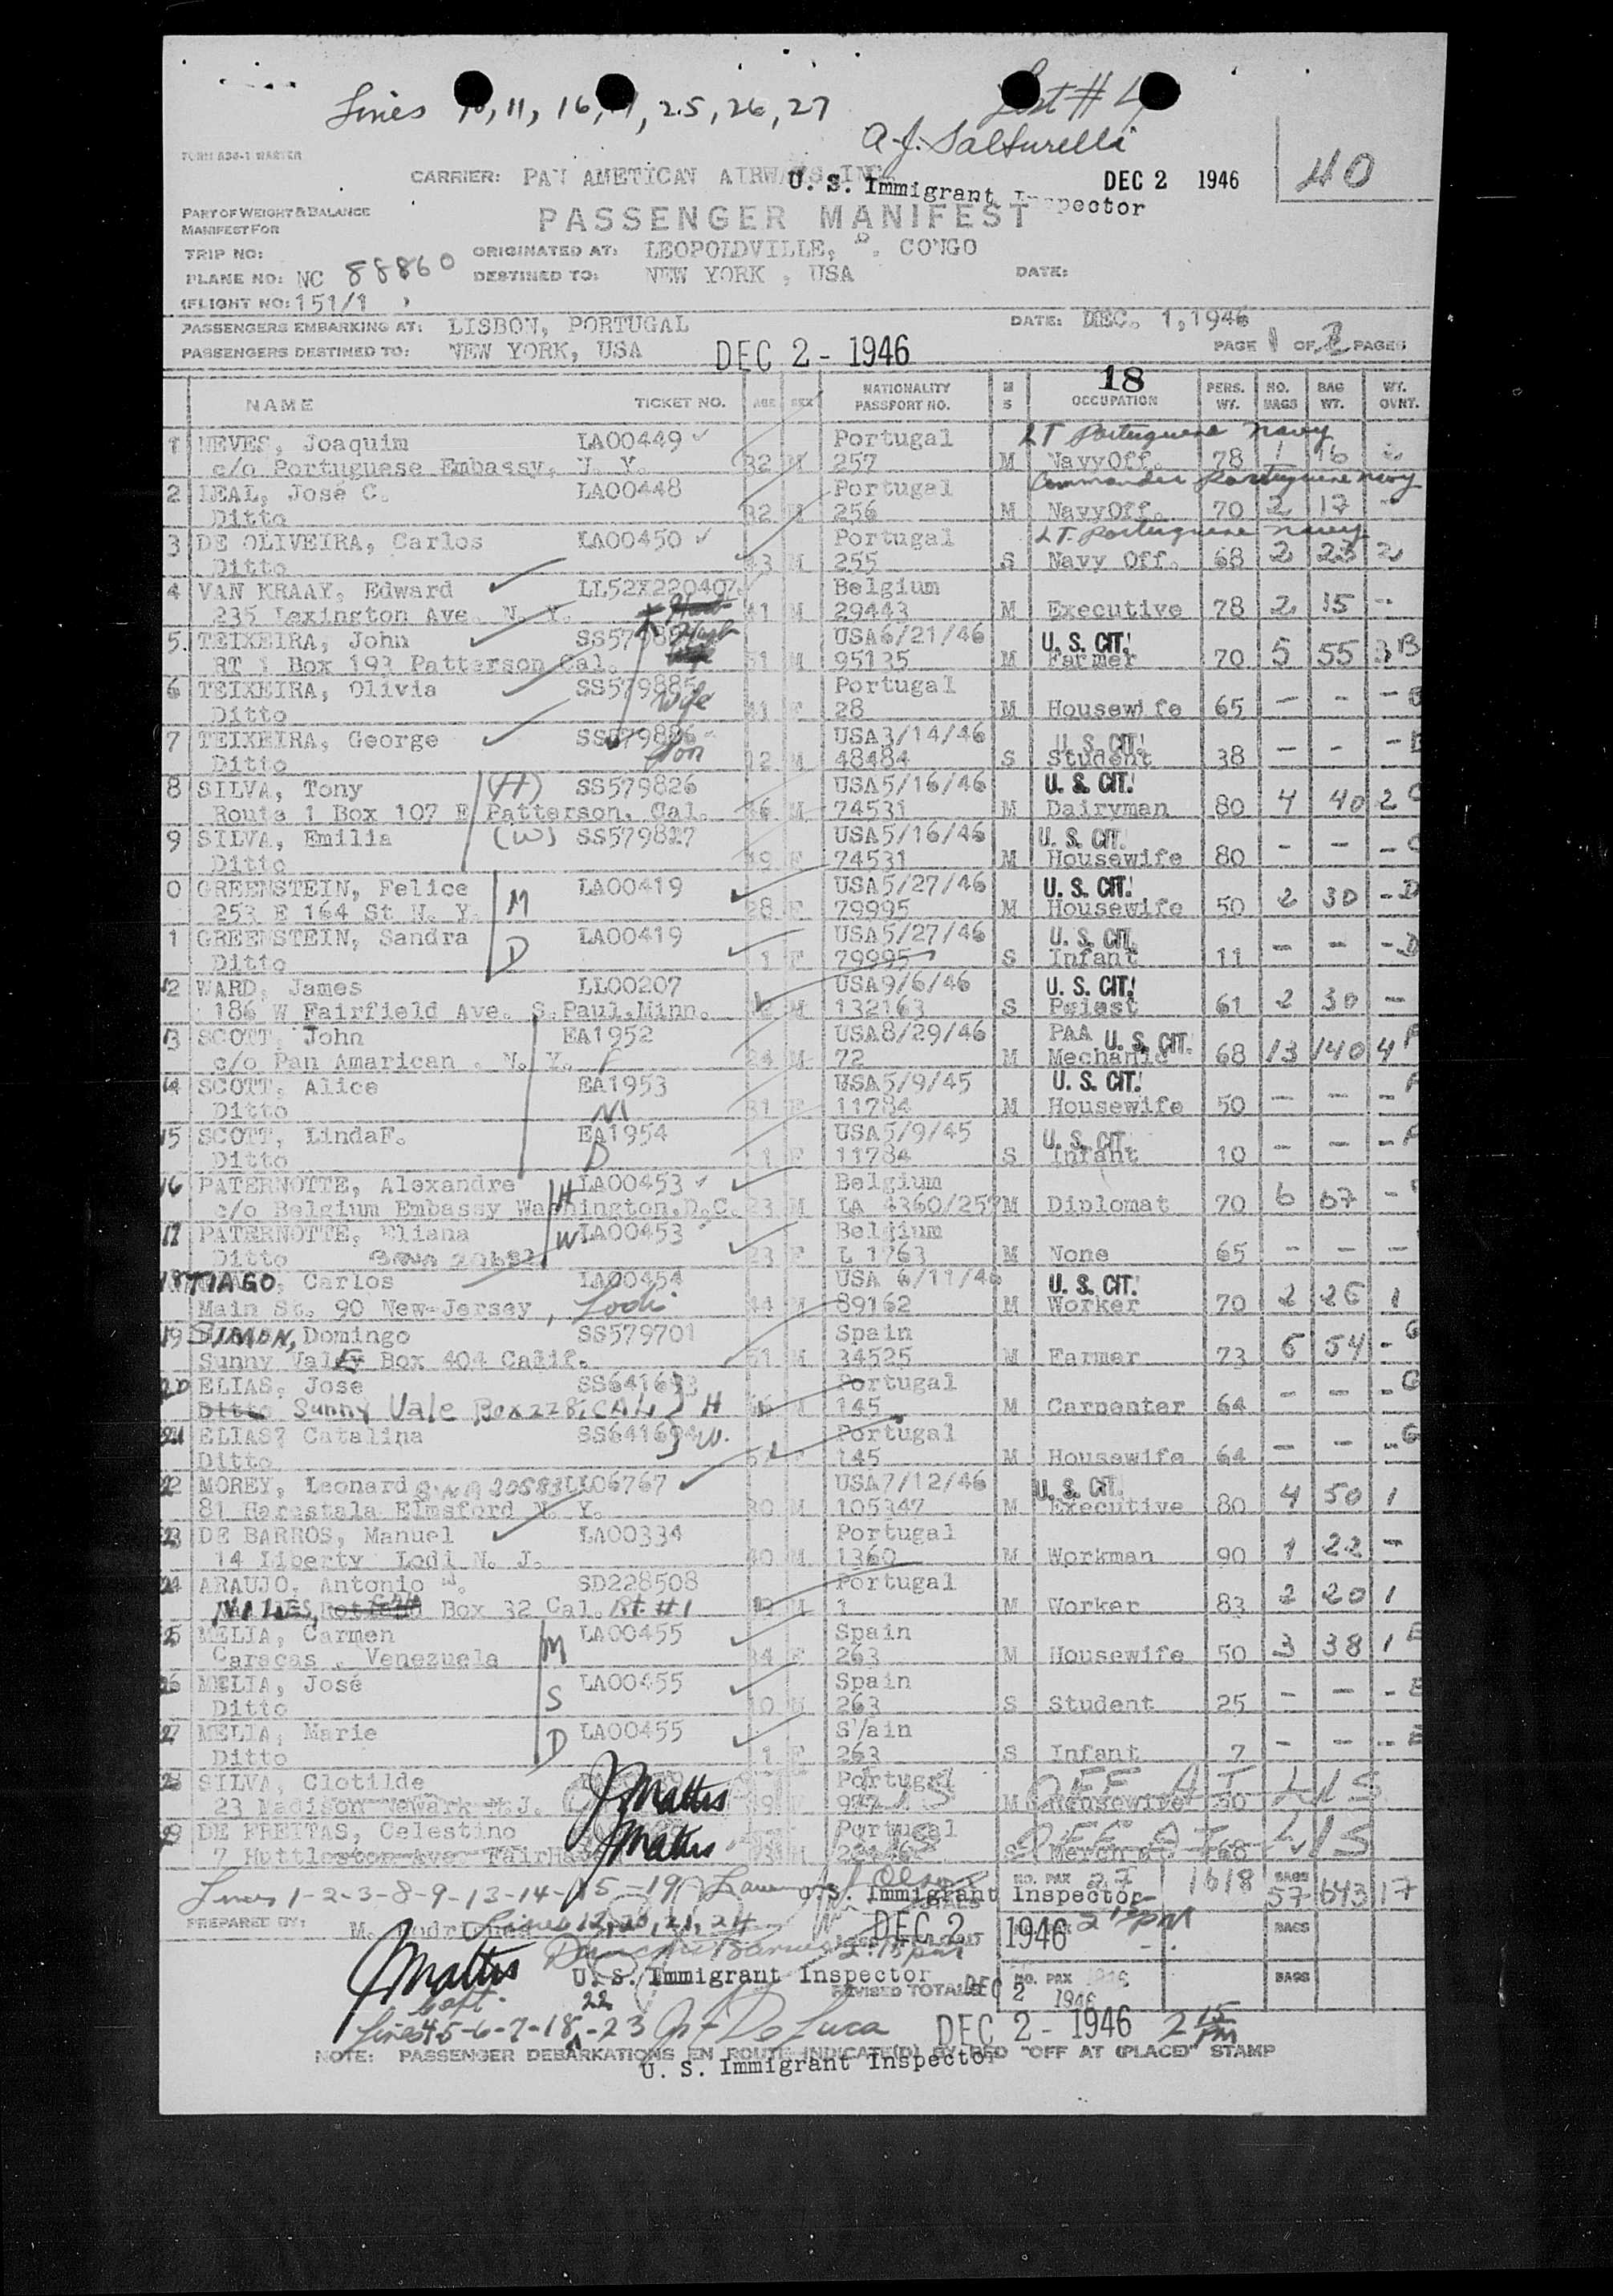 Lines 10, 11, 16, 17, 25, 26, 27
List # 4
A. J. Salturelli
FORM A34-1 MASTER
40
CARRIER: PAN AMETICAN AIRWAYS INC.
U. S. Immigrant Inspector
DEC 2 1946
PART OF WEIGHT & BALANCE
MANIFEST FOR
PASSENGER MANIFEST
TRIP NO:
ORIGINATED AT: LEOPOLDVILLE, B. CONGO
PLANE NO: NC 88860
DESTINED TO: NEW YORK , USA
DATE:
(FLIGHT NO: 151/1 )
PASSENGERS EMBARKING AT: LISBON, PORTUGAL
DATE: DEC. 1,1946
PASSENGERS DESTINED TO: NEW YORK, USA
DEC 2 - 1946
PAGE 1 OF 2 PAGES
18
NAME TICKET NO. AGE SEX NATIONALITY PASSPORT NO. M S OCCUPATION PERS. WT. NO. BAGS BAG WT. WT. OVRT.
1 NEVES, Joaquim LA00449 Portugal LT Portuguese navy
c/o Portuguese Embassy, N. Y. 32 M 257 M NavyOff. 78 1 16
2 LEAL, José C. LA00448 Portugal Commander Portuguese navy
Ditto 32 M 256 M NavyOff. 70 2 17 -
3 DE OLIVEIRA, Carlos LA00450 Portugal LT. Portuguese navy
Ditto 43 M 255 S Navy Off. 68 2 23 2
4 VAN KRAAY, Edward LL52X220407 Belgium
235 Lexington Ave. N. Y. 41 M 29443 M Executive 78 2 15 -
5. TEIXEIRA, John SS57988 USA6/21/46 U. S. CIT.
RT 1 Box 193 Patterson Cal. 51 M 95135 M Farmer 70 5 55 3 B
6 TEIXEIRA, Olivia SS579885 Portugal
Ditto Wife 41 F 28 M Housewife 65 - - - B
7 TEIXEIRA, George SS579886 USA3/14/46 U. S. CIT.
Ditto Son 12 M 48484 S Student 38 - - -
8 SILVA, Tony (H) SS579826 USA5/16/46 U. S. CIT.
Route 1 Box 107 E Patterson, Cal. 46 M 74531 M Dairyman 80 4 40 2 C
9 SILVA, Emilia (W) SS579827 USA5/16/46 U. S. CIT.
Ditto 49 F 74531 M Housewife 80 - - - C
0 GREENSTEIN, Felice M LA00419 USA5/27/46 U. S. CIT.
253 E 164 St N. Y. 28 F 79995 M Housewife 50 2 30 - D
1 GREENSTEIN, Sandra D LA00419 USA5/27/46 U. S. CIT.
Ditto 1 F 79995 S Infant 11 - - - D
12 WARD, James LL00207 USA9/6/46 U. S. CIT.
186 W Fairfield Ave. S.Paul.Minn. M 132163 S Priest 61 2 30 -
13 SCOTT, John EA1952 USA8/29/46 PAA U. S. CIT.
c/o Pan Amarican . N. Y. F 24 M 72 M Mechanic 68 13 140 4 F
14 SCOTT, Alice EA1953 USA5/9/45 U. S. CIT.
Ditto M 31 F 11784 M Housewife 50 - - - F
15 SCOTT, LindaF. EA1954 USA5/9/45 U. S. CIT.
Ditto D 1 F 11784 S Infant 10 - - - F
16 PATERNOTTE, Alexandre H LA00453 Belgium
c/o Belgium Embassy Washington.D.C. 23 M LA 4360/257 M Diplomat 70 6 67 -
17 PATERNOTTE, Eliana W LA00453 Belgium
Ditto 23 F L 1763 M None 65 - - -
18 TIAGO, Carlos LA00454 USA 6/11/46 U. S. CIT.
Main St. 90 New-Jersey , Lodi 44 M 89162 M Worker 70 2 26 1
19 SIMON, Domingo SS579701 Spain
Sunny Valey Box 404 Calif. 51 M 34525 M Farmer 73 6 54 - G
20 ELIAS, Jose SS641693 Portugal
Ditto Sunny Vale Box 228, CAL H 66 M 145 M Carpenter 64 - - - G
21 ELIAS? Catalina SS641694 W. Portugal
Ditto F 145 M Housewife 64 - - - G
22 MOREY, Leonard LL06767 USA7/12/46 U. S. CIT.
81 Harestala Elmsford N. Y. 30 M 105347 M Executive 80 4 50 1
23 DE BARROS, Manuel LA00334 Portugal
14 Liberty Lodi N. J. 40 M 1360 M Workman 90 1 22 -
24 ARAUJO, Antonio SD228508 Portugal
NILES, Box 32 Cal. Rt #1 M 1 M Worker 83 2 20 1
25 MELIA, Carmen M LA00455 Spain
Caracas . Venezuela 34 F 263 M Housewife 50 3 38 1 E
26 MELIA, José S LA00455 Spain
Ditto 10 M 263 S Student 25 - - - E
27 MELIA, Marie D LA00455 S'/ain
Ditto 1 F 263 S Infant 7 - - - E
28 SILVA, Clotilde J Mattis Portugal OFF AT LIS
23 Madison Newark N.J. M Housewife
29 DE FREITAS, Celestino J Mattis Portugal OFF AT LIS
7 Huttleston Ave. FairHaven M S 68
Lines 1-2-3-8-9-13-14-15-19
U.S. Immigrant Inspector
NO. PAX 27 1618 BAGS 57 643 17
PREPARED BY: M. Rodrigues
Lines 12, 20, 21, 24
DEC 2 1946 2:15 pm
BAGS
J Mattis
Capt.
U. S. Immigrant Inspector
REVISED TOTALS
DEC 2 1946
NO. PAX
BAGS
Lines 4-5-6-7-18-22-23 De Luca
DEC 2 - 1946 2 15 PM
NOTE: PASSENGER DEBARKATIONS EN ROUTE INDICATE(D) BY RED "OFF AT (PLACE)" STAMP
U. S. Immigrant Inspector